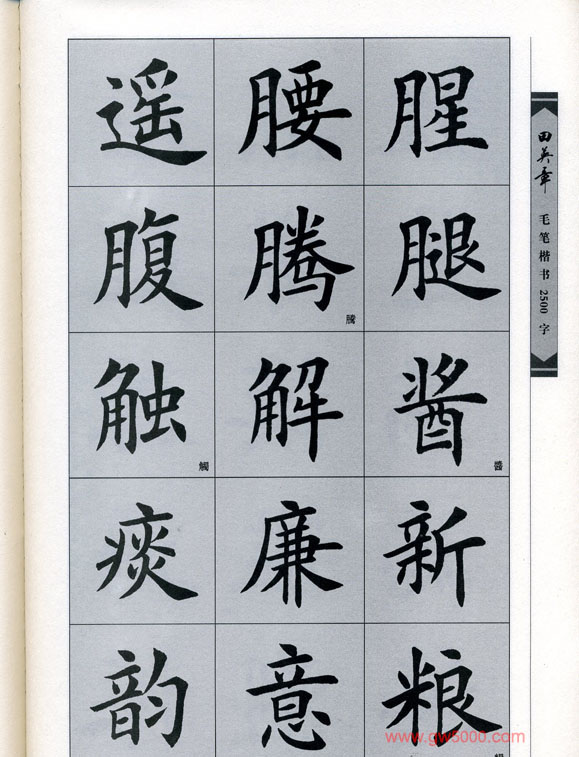 遥腰腥
腹腾腿
騰
触解酱
觸
醬
痰廉新
韵意粮
田英章
毛笔楷书2500字
www.gw5000.com